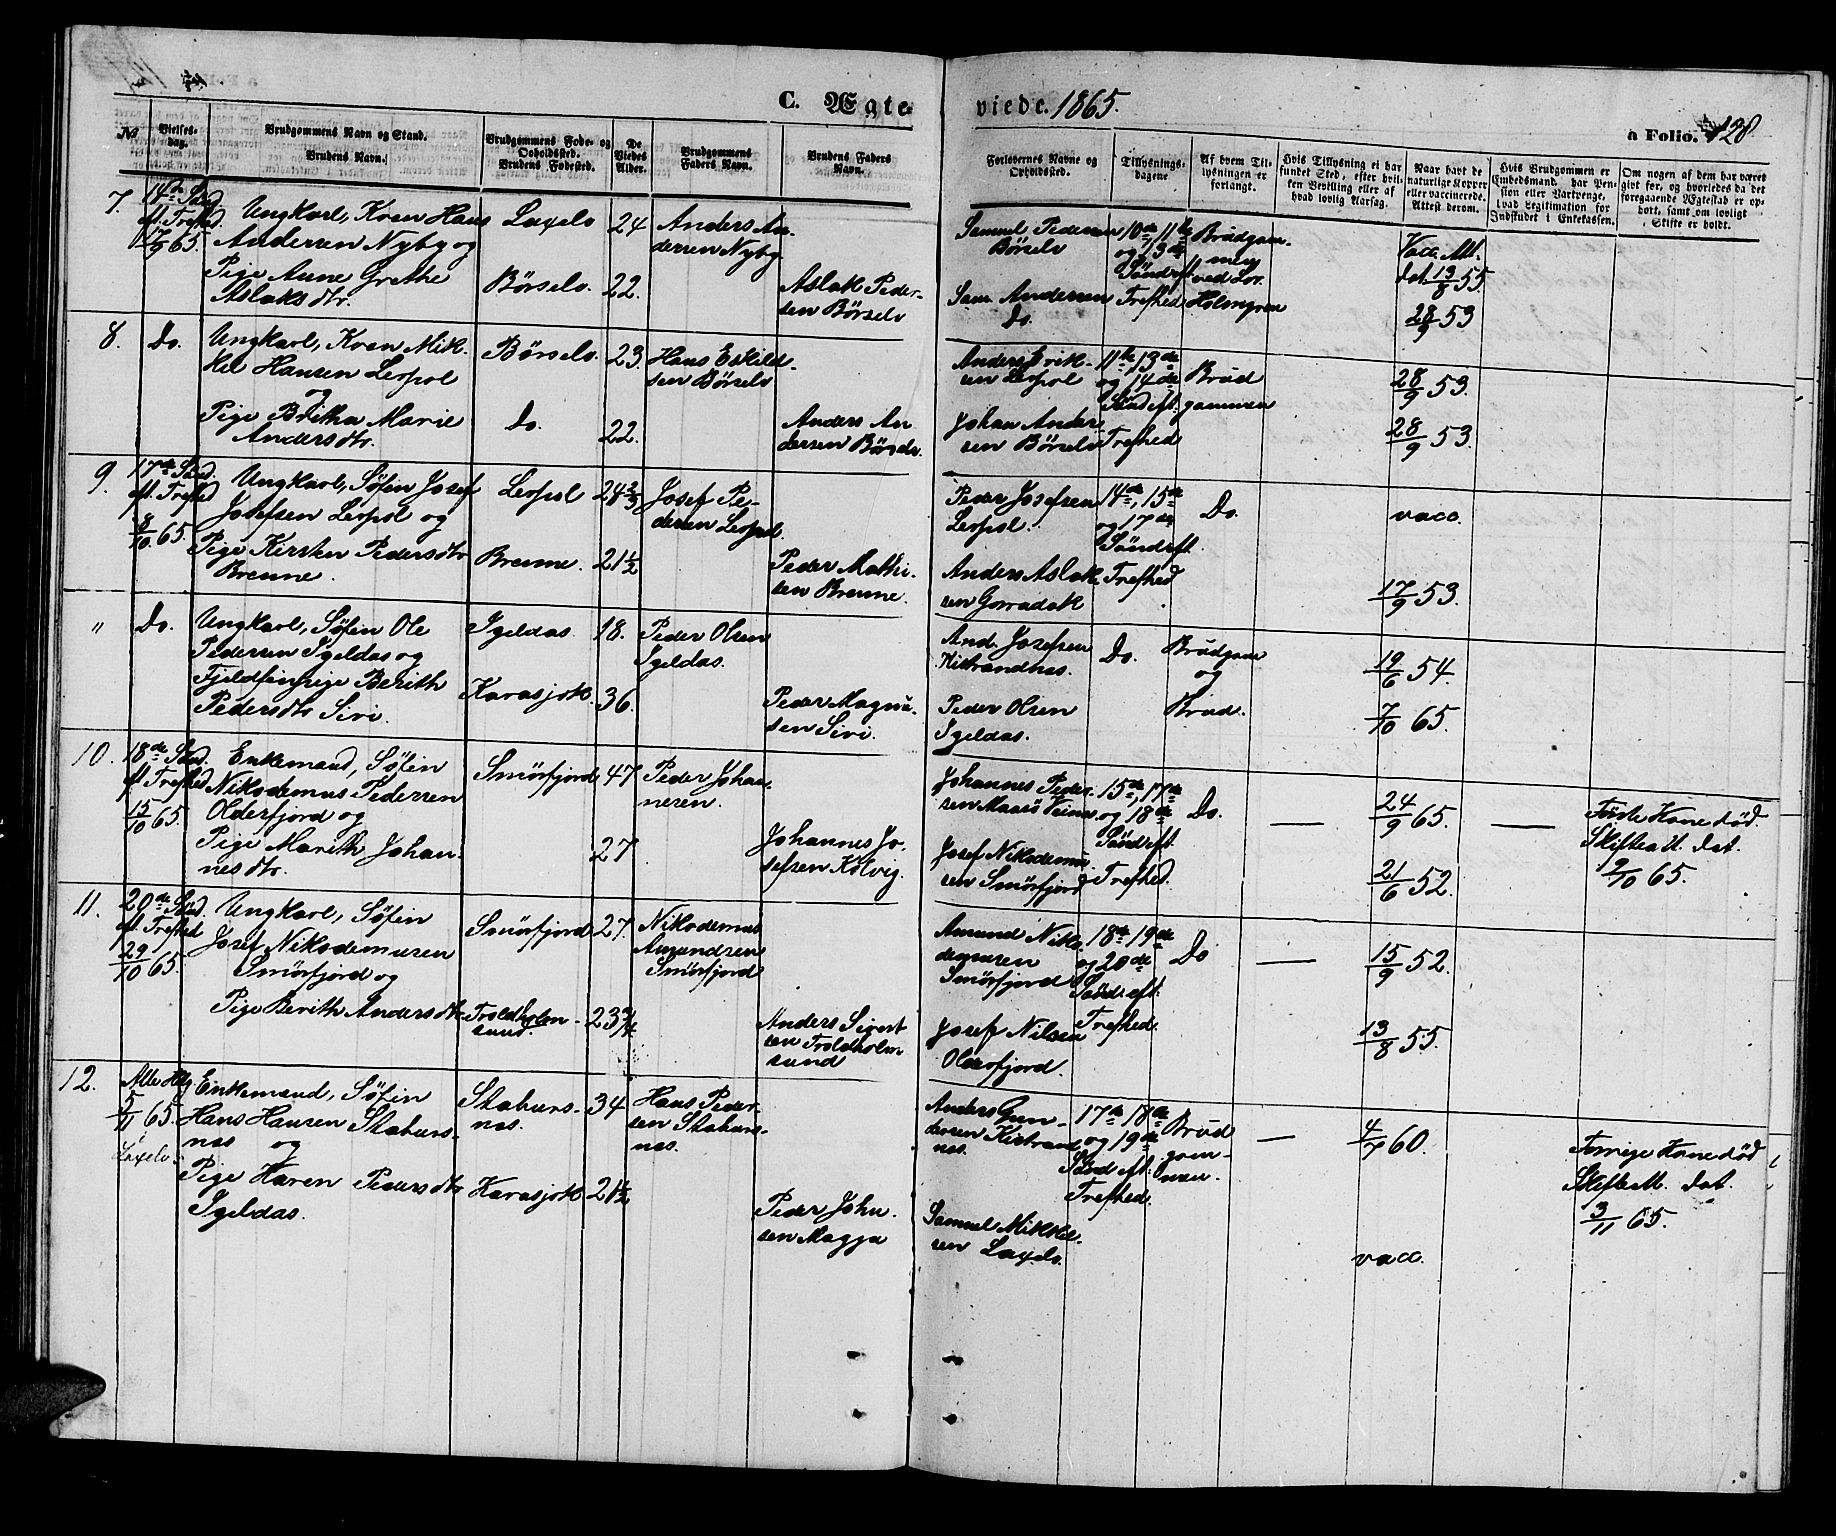 C. Ægte
viede. 1865.
a Folio. 128
No
Vielses-
dag.
Brudgommens Navn og Stand.
Brudens Navn.
Brudgommens Føde- og
Opholdssted.
Brudens Fødested.
De
Viedes
Alder.
Brudgommens
Faders Navn.
Brudens Faders
Navn.
Forlovernes Navne og
Opholdssted.
Tillysnings-
dagene.
Af hvem Til-
lysningen er
forlangt.
Hvis Tillysning ei har
fundet Sted, efter hvil-
ken Bevilling eller af
hvad lovlig Aarsag.
Naar havt de
naturlige Kopper
eller vaccinerede.
Attest derom.
Hvis Brudgommen er
Embedsmand, har Pen-
sion eller Vartpenge,
hvad Legitimation for
Indskudet i Enkekassen.
Om nogen af dem har været
givt før, og hvorledes da det
foregaaende Ægteskab er op-
hørt, samt om lovligt
Skifte er holdt.
7.
14de Sønd
ef. Trefhed
17/9 65.
Ungkarl, Kven Hans
Andersen Nyby og
Pige Anne Grethe
Aslaksdtr.
Laxelv
Børselv
24
22.
Anders An-
dersen Nyby
Aslak Peder-
sen Børselv
Samuel Pedersen
Børselv
Sam. Andersen
Do.
10de 11te
og 13de
Søndeft.
Trefhed
Brudgom-
men
ved Lov.
Holmgren
Vacc. Att.
dat. 13/8 55
28/9 53
8.
Do.
Ungkarl, Kven Mik-
kel Hansen Lerpol
og
Pige Britha Marie
Andersdtr.
Børselv.
Do.
23.
22.
Hans Eskild-
sen Børselv
Anders An
dersen Børselv.
Anders Erik-
sen Lerpol
Johan Ander
sen Børselv
11te 13de
og 14de
Sønd eft.
Trefhed
Brud
gommen
28/9 53.
28/9 53.
9.
17de Sønd.
ef. Trefhed
8/10. 65.
Ungkarl, Søfin Josef
Josefsen Lerpol og
Pige Kirsten Pedersdtr
Brenne.
Lerpol
Brenne.
24 2/3
21 1/2
Josef Pe-
dersen Lerpol.
Peder Mathi-
sen Brenne.
Peder Josefsen
Lerpol.
Anders Aslak
sen Gorradak
14de, 15de
og 17de
Søndeft.
Trefhed
Do.
vacc.
17/9 53.
"
Do.
Ungkarl, Søfin Ole
Pedersen Igeldas og
Fjeldfinpige Berith
Pedersdtr Sivi.
Igeldas.
Karasjok.
18.
36.
Peder Olsen
Igeldas.
Peder Magnu-
sen Sivi.
And. Josefsen
Kistrandnes.
Peder Olsen
Igeldas.
Do.
Brudgom
og
Brud.
19/6 54.
7/10 65.
10.
18de Sønd.
ef. Trefhed
15/10 65.
Enkemand, Søfin
Nikodemus Pedersen
Olderfjord og
Pige Marith Johan-
nesdtr.
Smörfjord
47
27
Peder Johan-
nesen.
Johannes Jo-
sefsen Kolvig.
Johannes Peder-
sen
Josef Nikodemu-
sen Smörfjord
15de, 17de
og 18de
Søndeft.
Trefhed.
Do.
24/9 65.
21/6 52.
Første Kone død.
Skifteatt. dat.
9/10 65.
11.
20de Sønd.
ef. Trefhed
29/10 65.
Ungkarl, Søfin
Josef Nikodemusen
Smörfjord og
Pige Berith Andersdtr
Smörfjord
Troldholm-
sund.
27.
23 3/4
Nikodemus
Amundsen
Smörfjord
Anders Sivert
sen Troldholm
sund
Amund Niko-
demusen
Smörfjord
Josef Nilsen
Olderfjord.
18de 19de
og 20de
Sønd eft.
Trefhed.
Do
15/9 52.
13/8 55.
12.
Alle Helg
5/11 65.
Laxelv.
Enkemand, Søfin
Hans Hansen Staburs-
nes og
Pige Karen Pedersdtr
Igeldas.
Stabursnes.
Karasjok
34
21 1/2
Hans Peder-
sen Stabursnes.
Peder John
sen Magga
Anders Gun-
dersen Kistrand
nes.
Samuel Mikkel-
sen Laxelv.
17de 18de
og 19de
Sønd eft.
Trefhed.
Brud
gom-
men.
4/7 60.
vacc.
Forrige Kone død
Skifteatt. dat.
3/11 65.